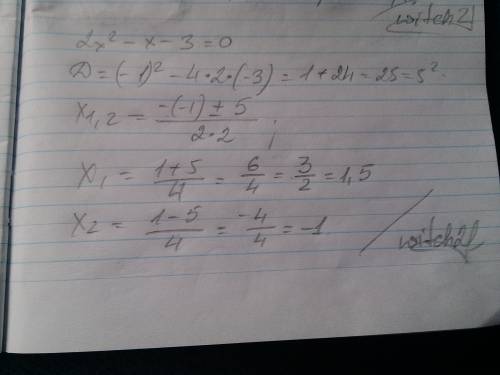 witch2
2x² - x - 3 = 0
D = (-1)² - 4·2·(-3) = 1 + 24 = 25 = 5².
x1,2 = -(-1) ± 5 / 2·2 ;
x1 = 1+5 / 4 = 6/4 = 3/2 = 1,5
x2 = 1-5 / 4 = -4/4 = -1
witch2